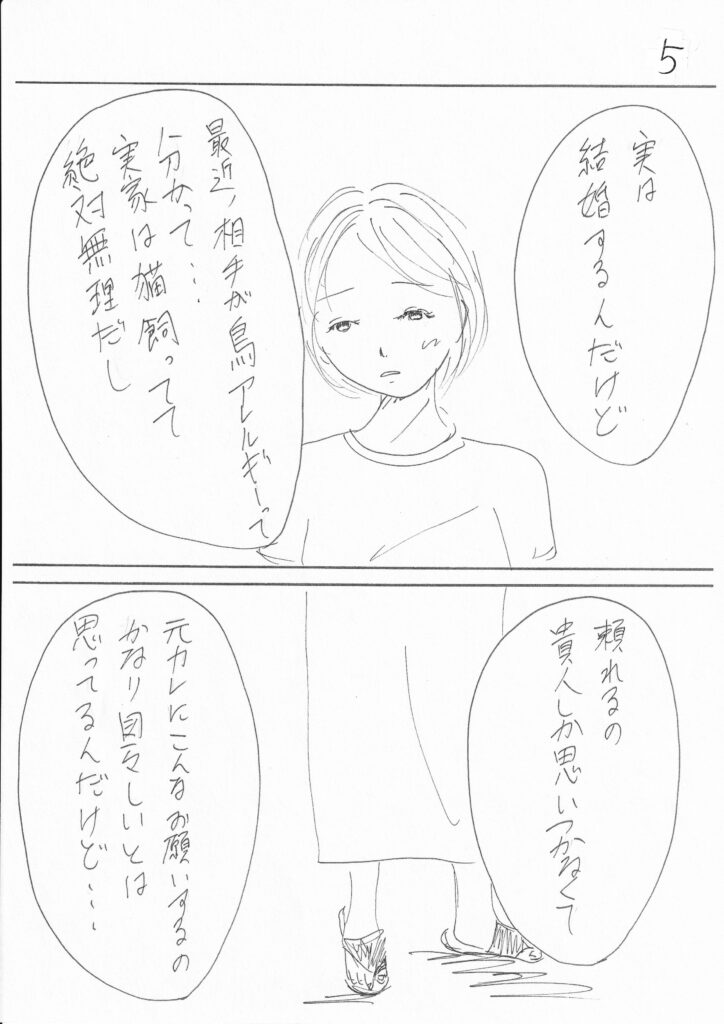 5
実は
結婚するんだけど
最近、相手が鳥アレルギーって
分かって…
実家は猫飼ってて
絶対無理だし
頼れるの
貴人しか思いつかなくて
元カレにこんなお願いするの
かなり図々しいとは
思ってるんだけど…